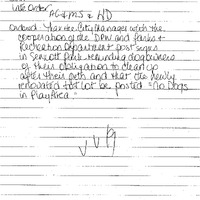 Late Order
AG & MS & WD
Ordered That the City Manager with the
cooperation of the DPW and Parks &
Recreation Department post signs
in Sennott Park reminding dog owners
of their obligation to clean up
after their pets and that the newly
renovated tot lot be posted "No Dogs
in Play Area."